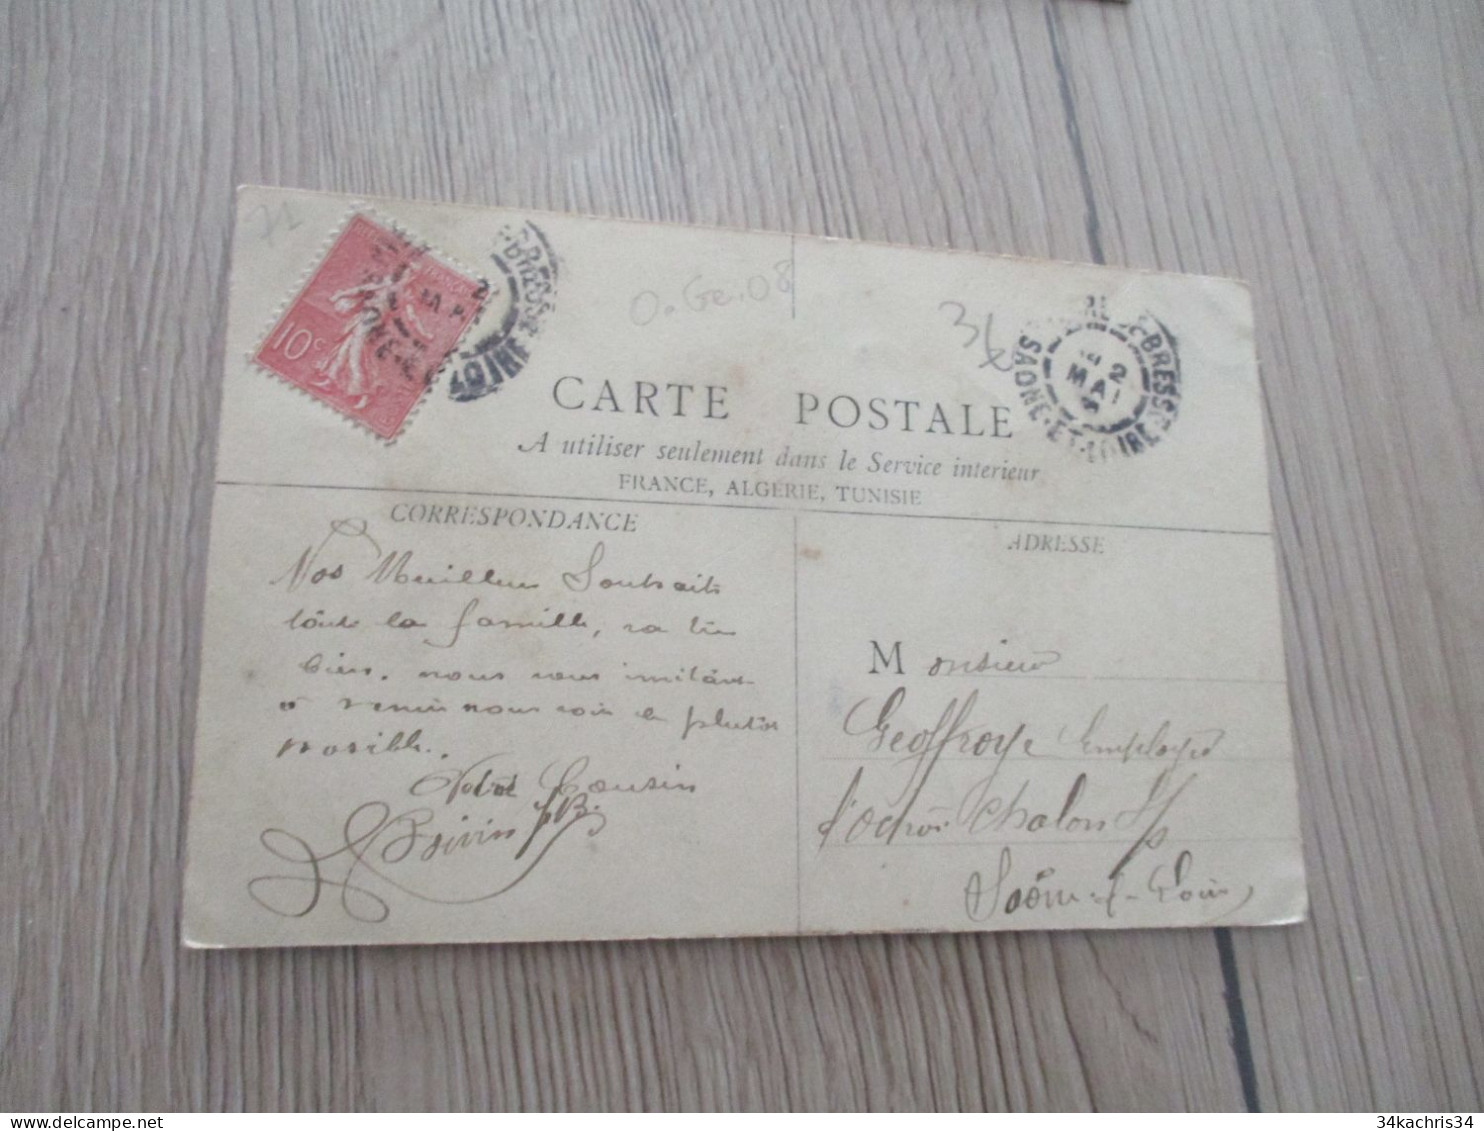 10c
LOIRE
O. Ge. 08
34
BRESSE
SAONE-ET-LOIRE
2
MAI
CARTE POSTALE
A utiliser seulement dans le Service interieur
FRANCE, ALGÉRIE, TUNISIE
CORRESPONDANCE
Nos Meilleurs Souhaits
toute la famille, va très
bien. nous vous invitons
a venir nous voir le plutôt
possible.
Votre Cousin
Boivin JB.
ADRESSE
Monsieur
Geoffroye Employé
d'octroi Chalon S/S
Saône-et-Loire
34kachris34